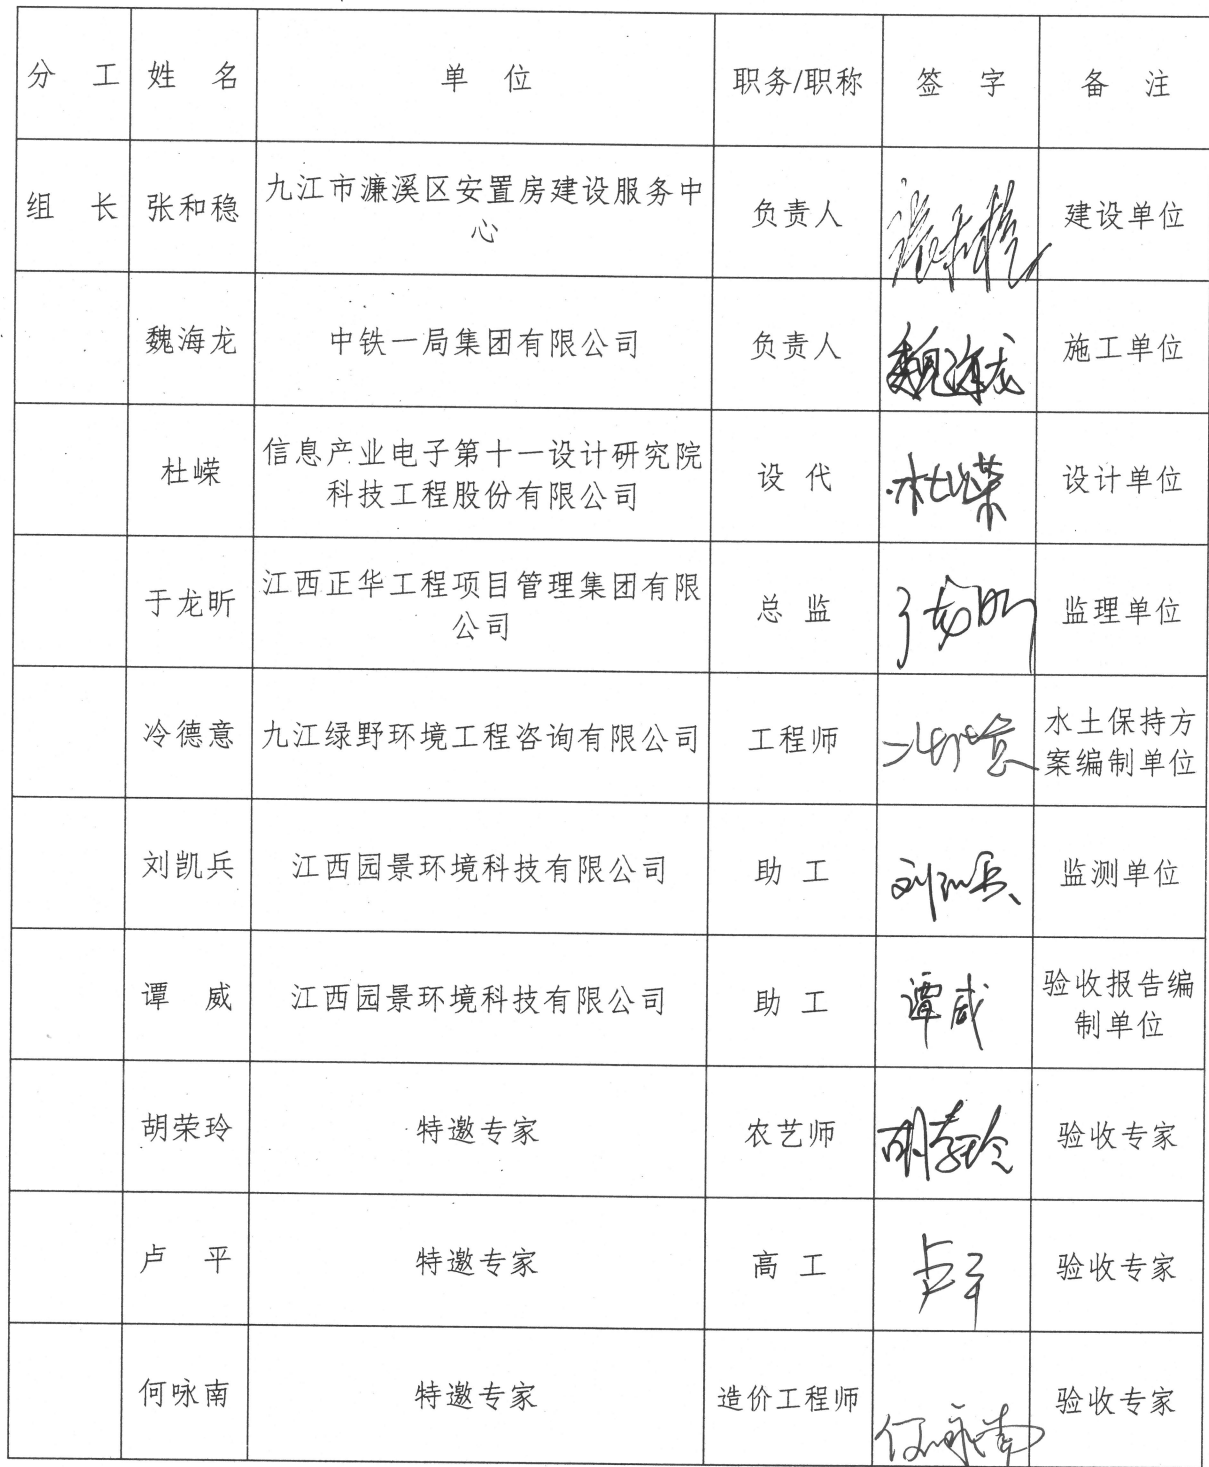 分 工 姓 名 单 位 职务/职称 签 字 备 注
组 长 张和稳 九江市濂溪区安置房建设服务中
心 负责人 张和稳 建设单位
魏海龙 中铁一局集团有限公司 负责人 魏海龙 施工单位
杜嵘 信息产业电子第十一设计研究院
科技工程股份有限公司 设 代 杜嵘 设计单位
于龙昕 江西正华工程项目管理集团有限
公司 总 监 于龙昕 监理单位
冷德意 九江绿野环境工程咨询有限公司 工程师 冷德意 水土保持方
案编制单位
刘凯兵 江西园景环境科技有限公司 助 工 刘凯兵 监测单位
谭 威 江西园景环境科技有限公司 助 工 谭威 验收报告编
制单位
胡荣玲 特邀专家 农艺师 胡荣玲 验收专家
卢 平 特邀专家 高 工 卢平 验收专家
何咏南 特邀专家 造价工程师 何咏南 验收专家